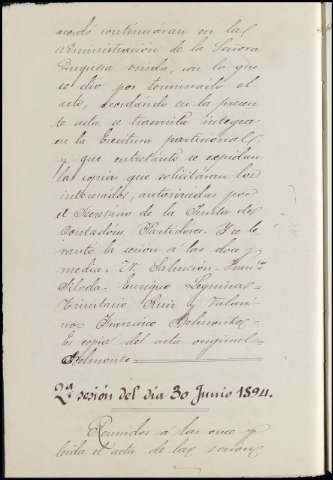 acordo continuaran en la
administración de la Señora
Duquesa viuda, con lo que
se dio por terminado el
acto, acordándose en la presen
te acta se trasmita íntegra
en la Escritura particional
y que entretanto se expidan
las copias que solicitaran los
interesados, autorizadas por
el Secretario de la Junta de
Contadores Partidores. Y se le
vantó la sesion a las doce y
media.
Enrique
Ruiz y
Francisco Belmonte
Es copia del acta original
Belmonte
2ª sesión del dia 30 Junio 1894.
Reunidos a las once y
leida el acta de la